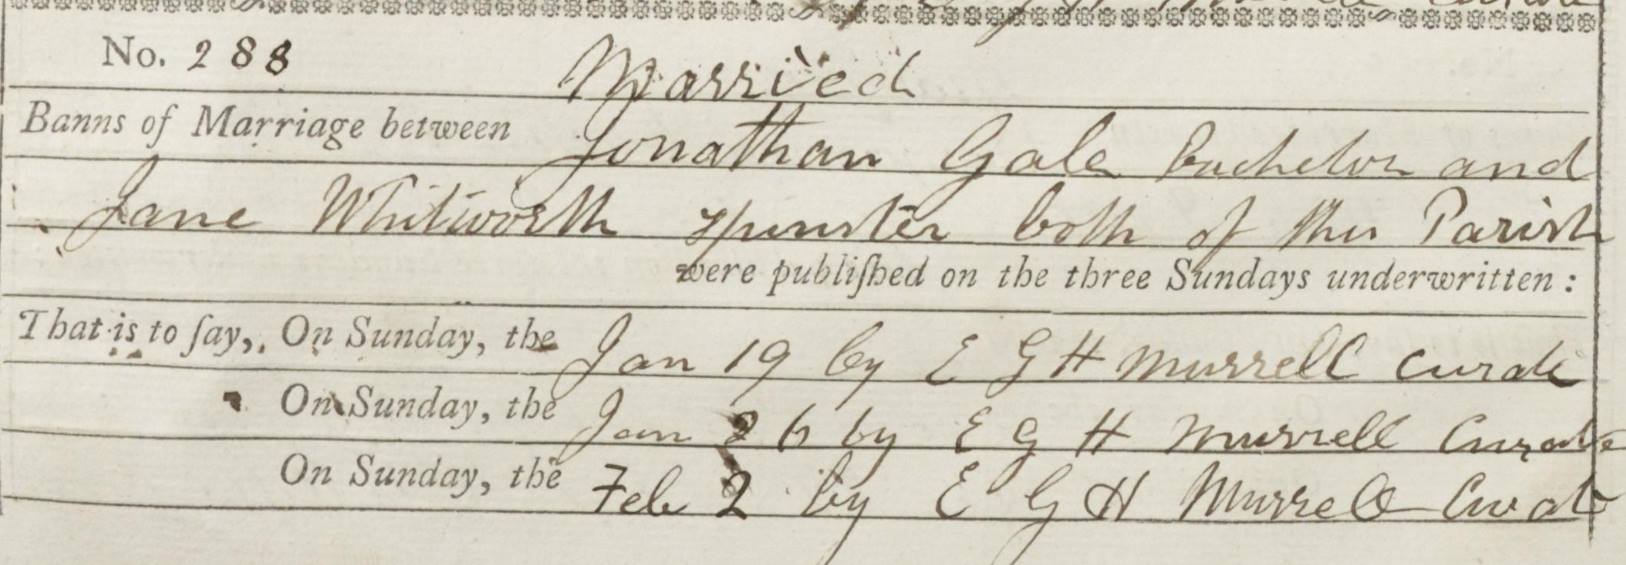 No. 288 Married
Banns of Marriage between Jonathan Gale bachelor and
Jane Whitworth spinster both of this Parish
were publiſhed on the three Sundays underwritten:
That is to ſay, On Sunday, the Jan 19 by E G H Murrell Curate
On Sunday, the Jan 26 by E G H Murrell Curate
On Sunday, the Feb 2 by E G H Murrell Curate